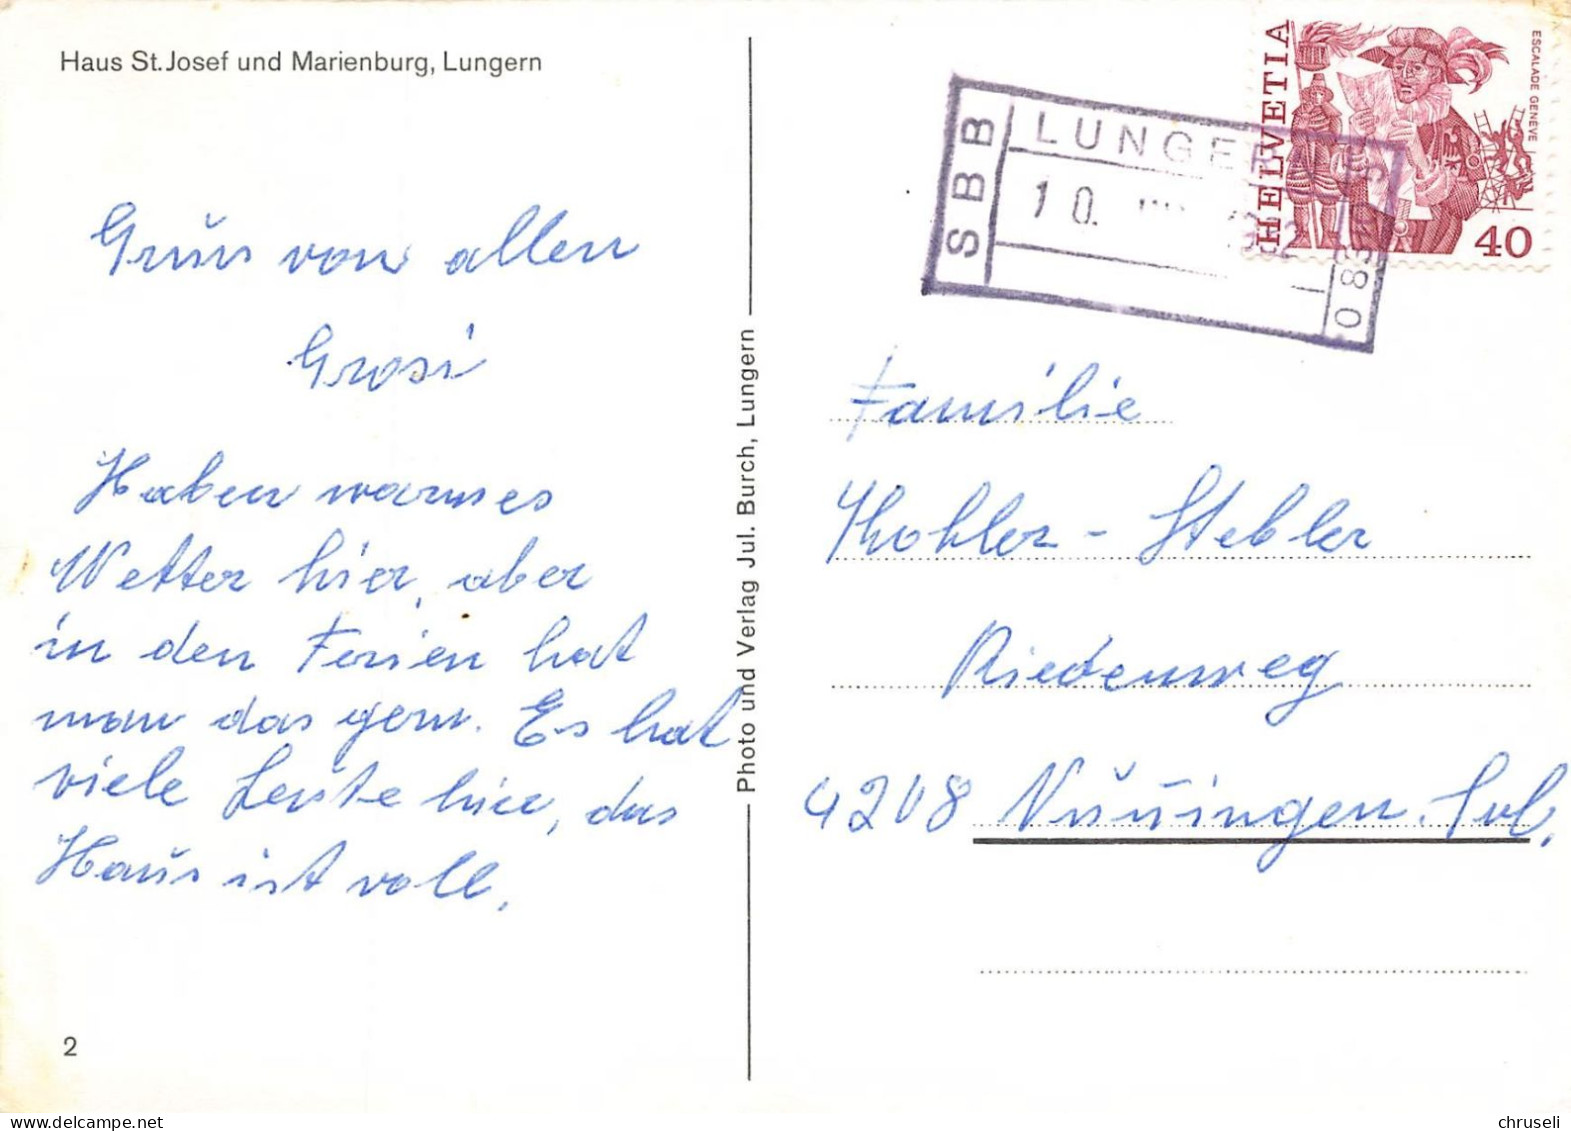 Haus St. Josef und Marienburg, Lungern
Gruss von allen
Grosi
Haben warmes
Wetter hier, aber
in den Ferien hat
man das gern. Es hat
viele Leute hier, das
Haus ist voll.
2
Photo und Verlag Jul. Burch, Lungern
SBB
LUNGERN
10.
HELVETIA
ESCALADE GENÈVE
40
Familie
Kohler-Stebler
Riedenweg
4208 Nunningen. Sol.
chruseli